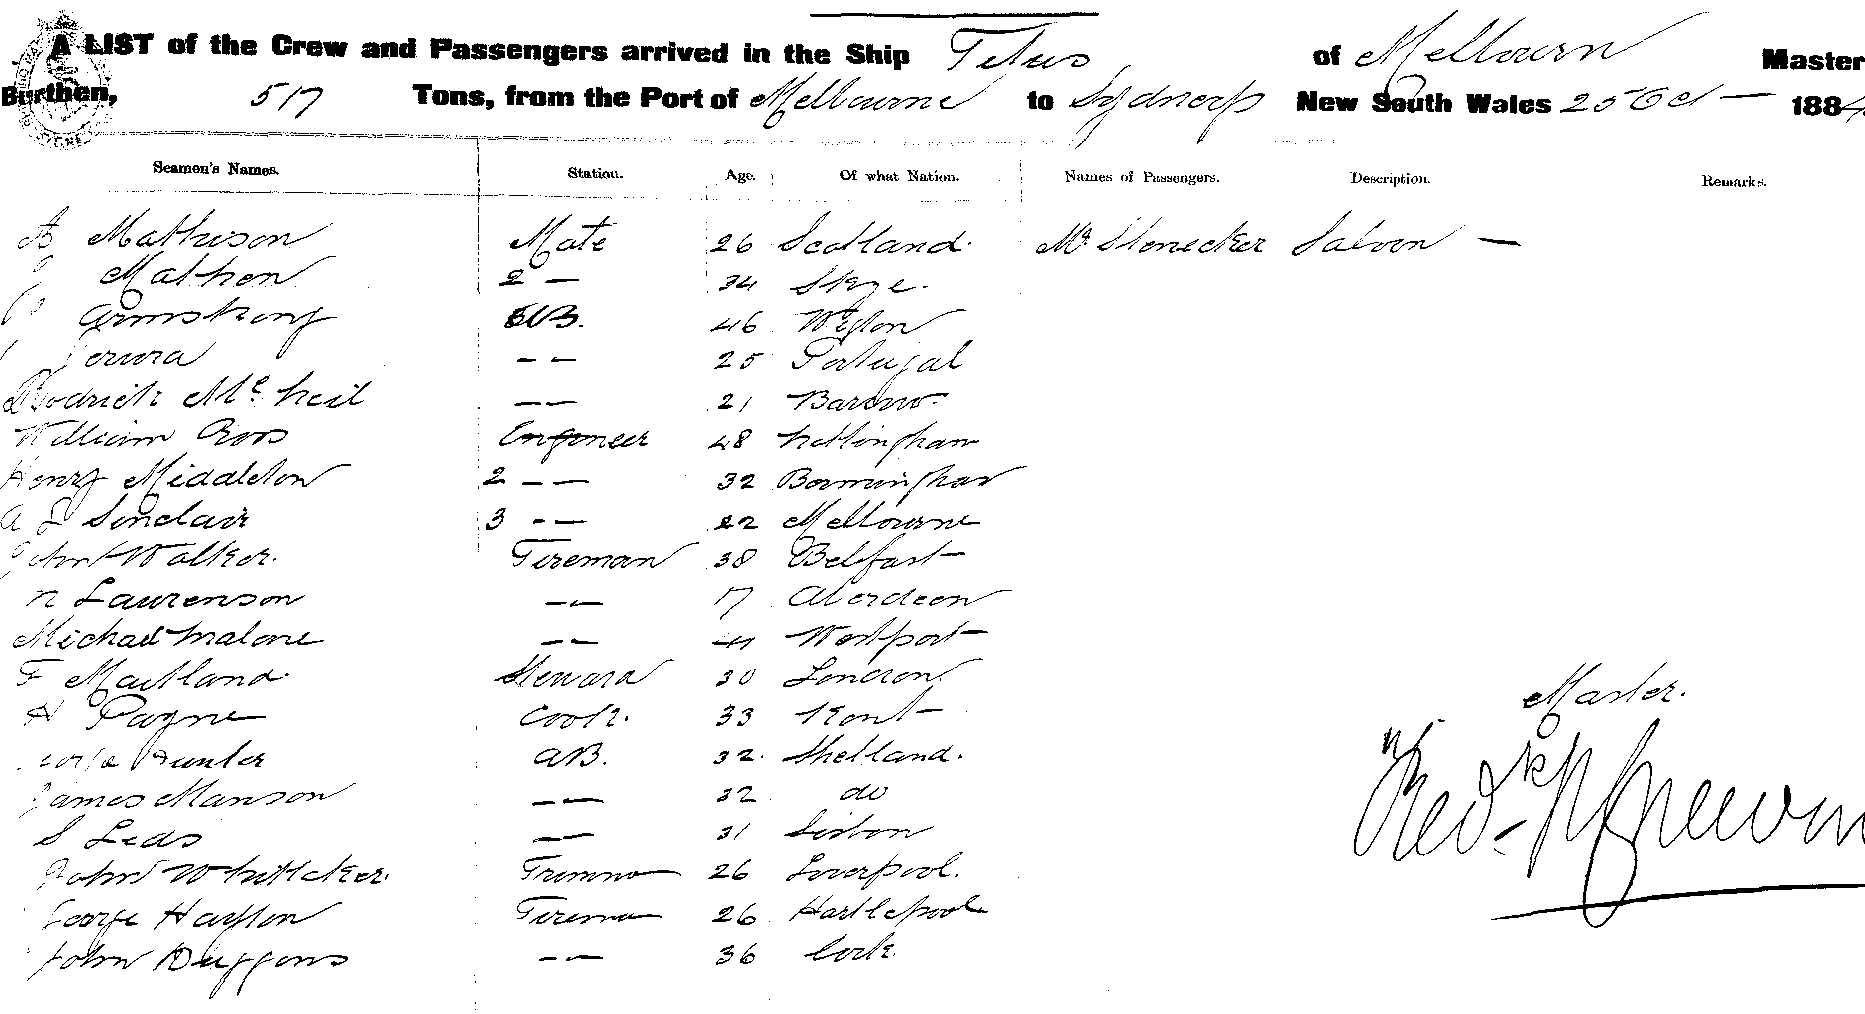 A LIST of the Crew and Passengers arrived in the Ship Titus of Melbourn Master
Burthen, 517 Tons, from the Port of Melbourne to Sydney New South Wales 25 Oct — 1884
Seamen's Names. Station. Age. Of what Nation. Names of Passengers. Description. Remarks.
A Mathison Mate 26 Scotland. Mr Saloon —
Mathen 2 — 34 Skye.
Armstrong AB. 46 Wigton
— — 25 Portugal
Rodrick Mc Neil — — 21
William Ross Engineer 48 Nottingham
Henry Middleton 2 — — 32 Birmingham
A L Sinclair 3 — — 22 Melbourne
John Walker. Fireman 38 Belfast
N Laurenson — — 17 Aberdeen
Michael Malone — — 41 Westport
F Maitland Steward 30 London
H Payne Cook. 33 Kent
Hunter AB. 32. Shetland.
James Manson — — 32 do
S — 31 Lisbon
John Whittcker. Trimmer 26 Liverpool.
George Fireman 26 Hartlepool
John Duggons — — 36 Cork.
Master.